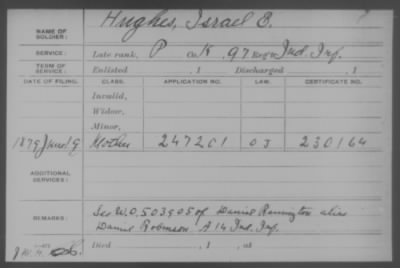 NAME OF SOLDIER: Hughes, Israel B.
SERVICE: Late rank, P Co. K, 97 Reg't Ind. Inf.
TERM OF SERVICE: Enlisted , 1 Discharged , 1
DATE OF FILING. CLASS. APPLICATION NO. LAW. CERTIFICATE NO.
Invalid,
Widow,
Minor,
1879 June 19 Mother 247201 03 230164
ADDITIONAL SERVICES:
REMARKS: See W.O. 503905 of Daniel Rennington alias
Daniel Robinson A 14 Ind. Inf.
Died , 1 , at